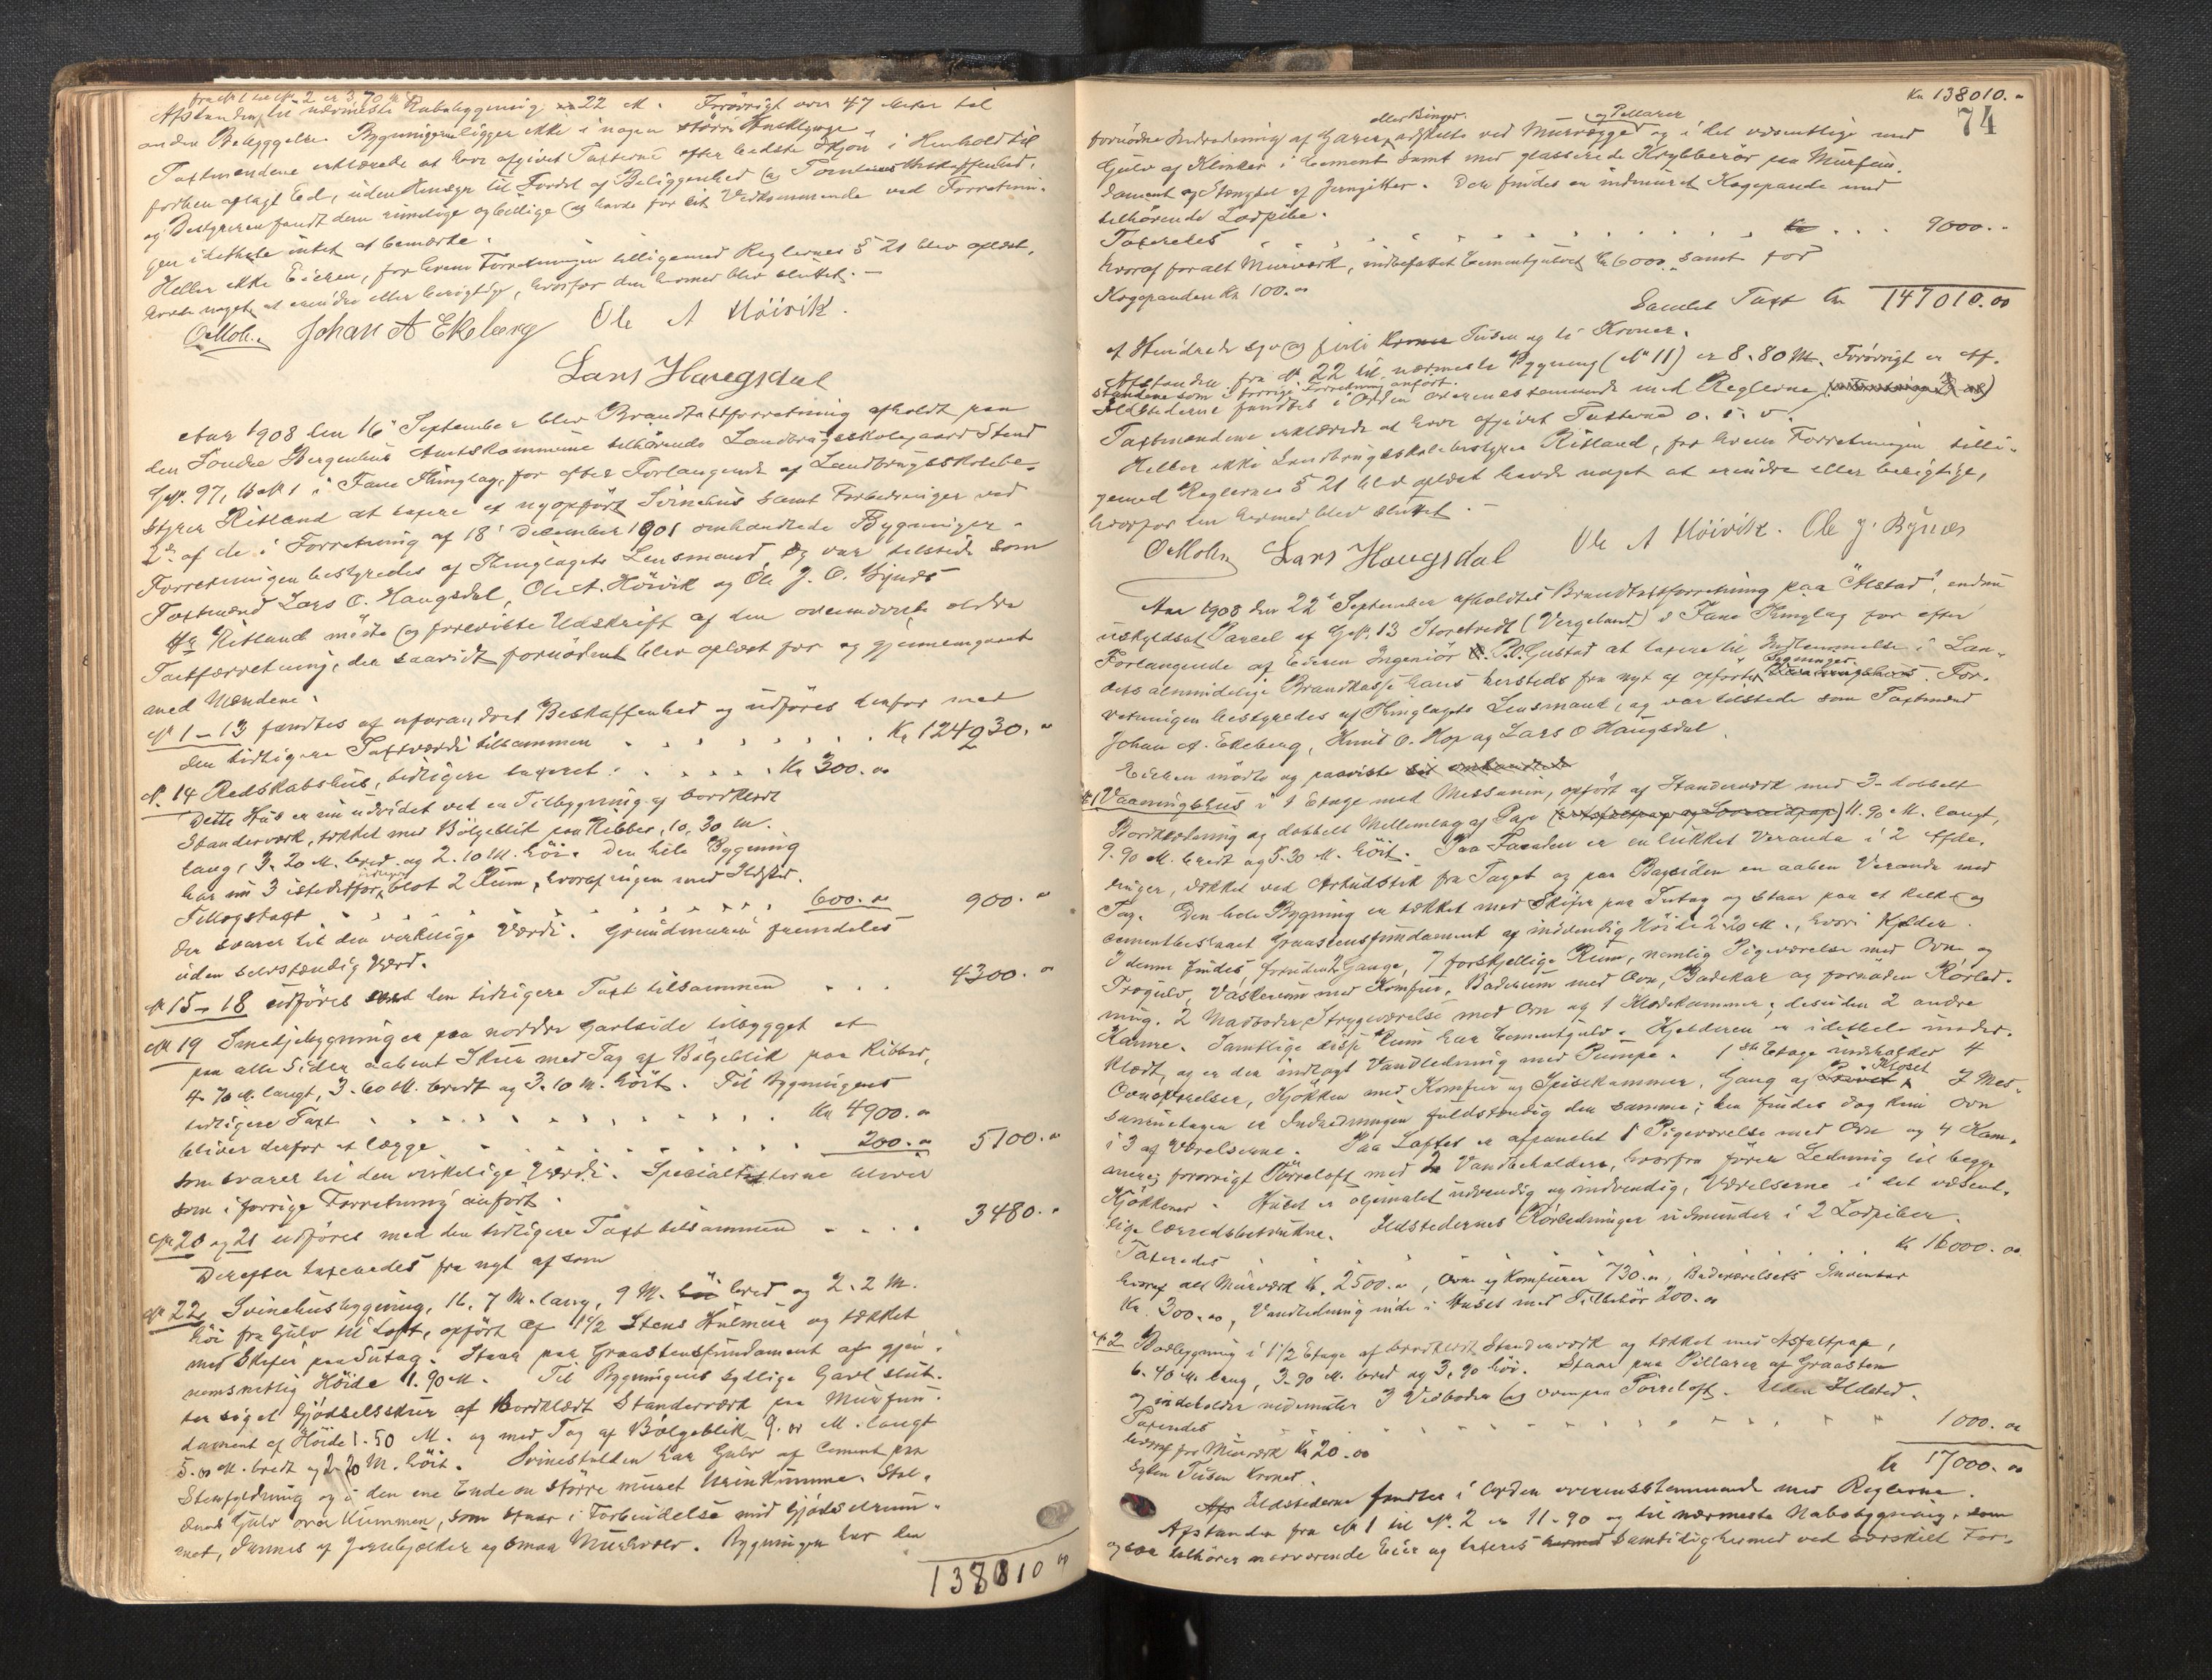 fra № 1 til № 2 er 3.70 M
Afstanden til nærmeste Nabobygning 22 M. Forøvrigt over 47 Meter til
anden Bebyggelse. Bygningerne ligger ikke i nogen større Huusklynge.
Taxtmændene erklærede at have afgivet Taxterne efter bedste Skjøn i Henhold til
forhen aflagt Ed, uden Hensyn til Fordel af Beliggenhed og Tomtens Beskaffenhed,
og Bestyreren fandt dem rimelige og billige og havde for sit Vedkommende ved Forretnin-
gen idethele intet at bemærke.
Heller ikke Eieren, for hvem Forretningen tilligemed Reglernes § 21 blev oplæst,
havde noget at erindre eller berigtige, hvorfor den hermed blev sluttet. —
O Moh. Johan A Ekeberg Ole A Höivik.
Lars Haugsdal
Aar 1908 den 16' September blev Brandtaxtforretning afholdt paa
den Søndre Bergenhus Amtskommune tilhørende Landbrugsskolegaard Stend
G№ 97, B№ 1 i Fane Thinglag, for efter Forlangende af Landbrugsskolebe-
styrer Ritland at taxere et nyopført Svinehus samt Forbedringer ved
2de af de i Forretning af 18' December 1901 omhandlede Bygninger.
Forretningen bestyredes af Thinglagets Lensmand og var tilstede som
Taxtmænd Lars O. Haugsdal, Ole A. Höivik og Ole J. O. Bynes
Hr Ritland mødte og foreviste Udskrift af den ovennævnte ældre
Taxtforretning, der saavidt fornødent blev oplæst for og gjennemgaaet
med Mændene.
№ 1 – 13 fandtes af uforandret Beskaffenhed og udføres derfor med
den tidligere Taxtværdi tilsammen . . . . . . Kr 124930.00
№ 14 Redskabshus, tidligere taxeret . . . . . Kr 300.00
Dette Hus er nu udvidet ved en Tilbygning af bordklædt
Standerværk, tækket med Bølgeblik paa Ribber, 10,30 M.
lang, 3.20 M. bred og 2.10 M. høi. Den hele Bygning
har nu 3 istedetfor blot 2 Rum, hvoraf ingen med Ildsted.
Tillægstaxt . . . . . . . . . 600.00 900.00
der svarer til den virkelige Værdi. Grundmuren fremdeles
uden selvstændig Værd.
№ 15–18 udføres med den tidligere Taxt tilsammen . . . 4300.00
№ 19 Smedjebygningen paa nordre Gavlside tilbygget et
paa alle Sider aabent Skur med Tag af Bølgeblik paa Ribber,
4.70 M. langt, 3.60 M. bredt og 3.10 M. høit. Til Bygningens
tidligere Taxt . . . . . . . . . Kr 4900.00
bliver derfor at lægge . . . . . . . 200.00 5100.00
som svarer til den virkelige Værdi. Specialtaxterne bliver
som i forrige Forretning anført.
№ 20 og 21 udføres med den tidligere Taxt tilsammen . . . . 3480.00
Derefter taxeredes fra nyt af som
№ 22, Svinehusbygning, 16,7 M. lang, 9 M. bred og 2.2 M.
høi fra Gulv til Loft, opført af 1 1/2 Stens Hulmur og tækket
med Skifer paa Sutag. Staar paa Graastensfundament af gjen-
nemsnitlig Høide 1.90 M. Til Bygningens sydlige Gavl slut-
ter sig et Gjødselsskur af bordklædt Standerværk paa Murfun-
dament af Høide 1.50 M. og med Tag af Bølgeblik 9.00 M. langt
5.00 M. bredt og 2.20 M. høit. Svinestalden har Gulv af Cement paa
Stenfyldning og i den ene Ende en større muret Urinkumme. Stal-
dens Gulv over Kummen, som staar i Forbindelse med Gjødselrum-
met, dannes af Jernbjelker og smaa Murhvælv. Bygningen har den
138010 00
Kr 138010.00
74
eller Binger. og Pillarer
fornødne Indredning af Garer, adskilte ved Murvægge og i det væsentlige med
Gulv af Klinker i Cement samt med glasserede Krybberør paa Murfun-
dament og Stængsel af Jerngitter. Der findes en indmuret Kogepande med
tilhørende Lodpibe.
Taxeredes . . . . . . . . . 9000.00
hvoraf for alt Murværk, indbefattet Cementgulvet Kr 6000.00 samt for
Kogepanden Kr 100.00
Samlet Taxt Kr 147010.00
et Hundrede syv og firti Tusen og ti Kroner.
Afstanden fra № 22 til nærmeste Bygning (№ 11) er 8.80 M. Forøvrigt er Af-
standene som i forrige Forretning anført.
Ildstederne fandtes i Orden overensstemmende med Reglerne
Taxtmændene erklærede at have afgivet Taxterne o. s. v.
Heller ikke Landbrugsskolebestyrer Ritland, for hvem Forretningen tilli-
gemed Reglernes § 21 blev oplæst havde noget at erindre eller berigtige,
hvorfor den hermed blev sluttet. —
O Moh. Lars Haugsdal Ole A Höivik. Ole J. Bynes
Aar 1908 den 22' September afholdtes Brandtaxtforretning paa "Alstad", endnu
uskyldsat Parcel af G№ 13 Storetvedt (Vergeland) i Fane Thinglag for efter
Forlangende af Eieren Ingeniør P. O. Gjestad at taxere til Indlemmelse i Lan-
dets almindelige Brandkasse hans hersteds fra nyt af opførte Bygninger. For-
retningen bestyredes af Thinglagets Lensmand, og var tilstede som Taxtmænd
Johan A. Ekeberg, Knud O. Hop og Lars O Haugsdal.
Eieren mødte og paaviste
№ 1 Vaaningshus i 1 Etage med Messanin, opført af Standerværk med 3-dobbelt
Bordklædning og dobbelt Mellemlag af Pap 11.90 M. langt,
9.90 M. bredt og 5.30 M. høit. Paa Facaden er en lukket Veranda i 2 Afde-
linger, dækket ved Arkudstik fra Taget og paa Bagsiden en aaben Veranda med
Tag. Den hele Bygning er tækket med Skifer paa Sutag og staar paa et kalk- og
cementbeslaaet Graastensfundament af indvendig Høide 2.20 M., hvori Kjelder.
I denne findes, foruden 2 Gange, 7 forskjellige Rum, nemlig Pigeværelse med Ovn og
Trægulv, Vaskerum med Komfur, Baderum med Ovn, Badekar og fornøden Rørled-
ning. 2 Madboder, Strygeværelse med Ovn og 1 Klædekammer; desuden 2 andre
Kamre. Samtlige disse Rum har Cementgulv. Kjelderen er idethele indvd.
klædt, og er der indlagt Vandledning med Pumpe. 1ste Etage indeholder 4
Ovnsværelser, Kjøkken med Komfur og Spisekammer, Gang og Kloset. I Mes-
saninetagen er Indredningen fuldstændig den samme; her findes dog kun Ovn
i 3 af Værelserne. Paa Loftet er afpanelet 1 Pigeværelse med Ovn og 4 Kam-
mere; forøvrigt Tørreloft med 2 Vandbeholdere, hvorfra fører Ledning til begge
Kjøkkener. Huset er oljemalet udvendig og indvendig, Værelserne i det væsent-
lige lærredsbetrukne. Ildstedernes Rørledninger udmunder i 2 Lodpiber.
Taxeredes . . . . . . . . . Kr 16000.00
hvoraf alt Murværk Kr. 2500.00, Ovne og Komfurer 730.00, Badeværelsets Inventar
Kr. 300.00, Vandledning inde i Huset med Tilbehør 200.00
№ 2 Bodbygning i 1 1/2 Etage af bordklædt Standerværk og tækket med Asfaltpap,
6.40 M. lang, 3.90 M. bred og 3.90 høi. Staar paa Pillarer af Graasten
og indeholder nedenunder 3 Vedboder og ovenpaa Tørreloft. Uden Ildsted.
Taxeredes . . . . . . . . . 1000.00
hvoraf for Murværk Kr 20.00
Kr 17000.00
Sytten Tusen Kroner.
Ildstederne fandtes i Orden overensstemmende med Reglerne.
Afstanden fra № 1 til № 2 er 11.90 og til nærmeste Nabobygning, som
ogsaa tilhører nærværende Eier og taxeres samtidig hermed ved særskilt For-